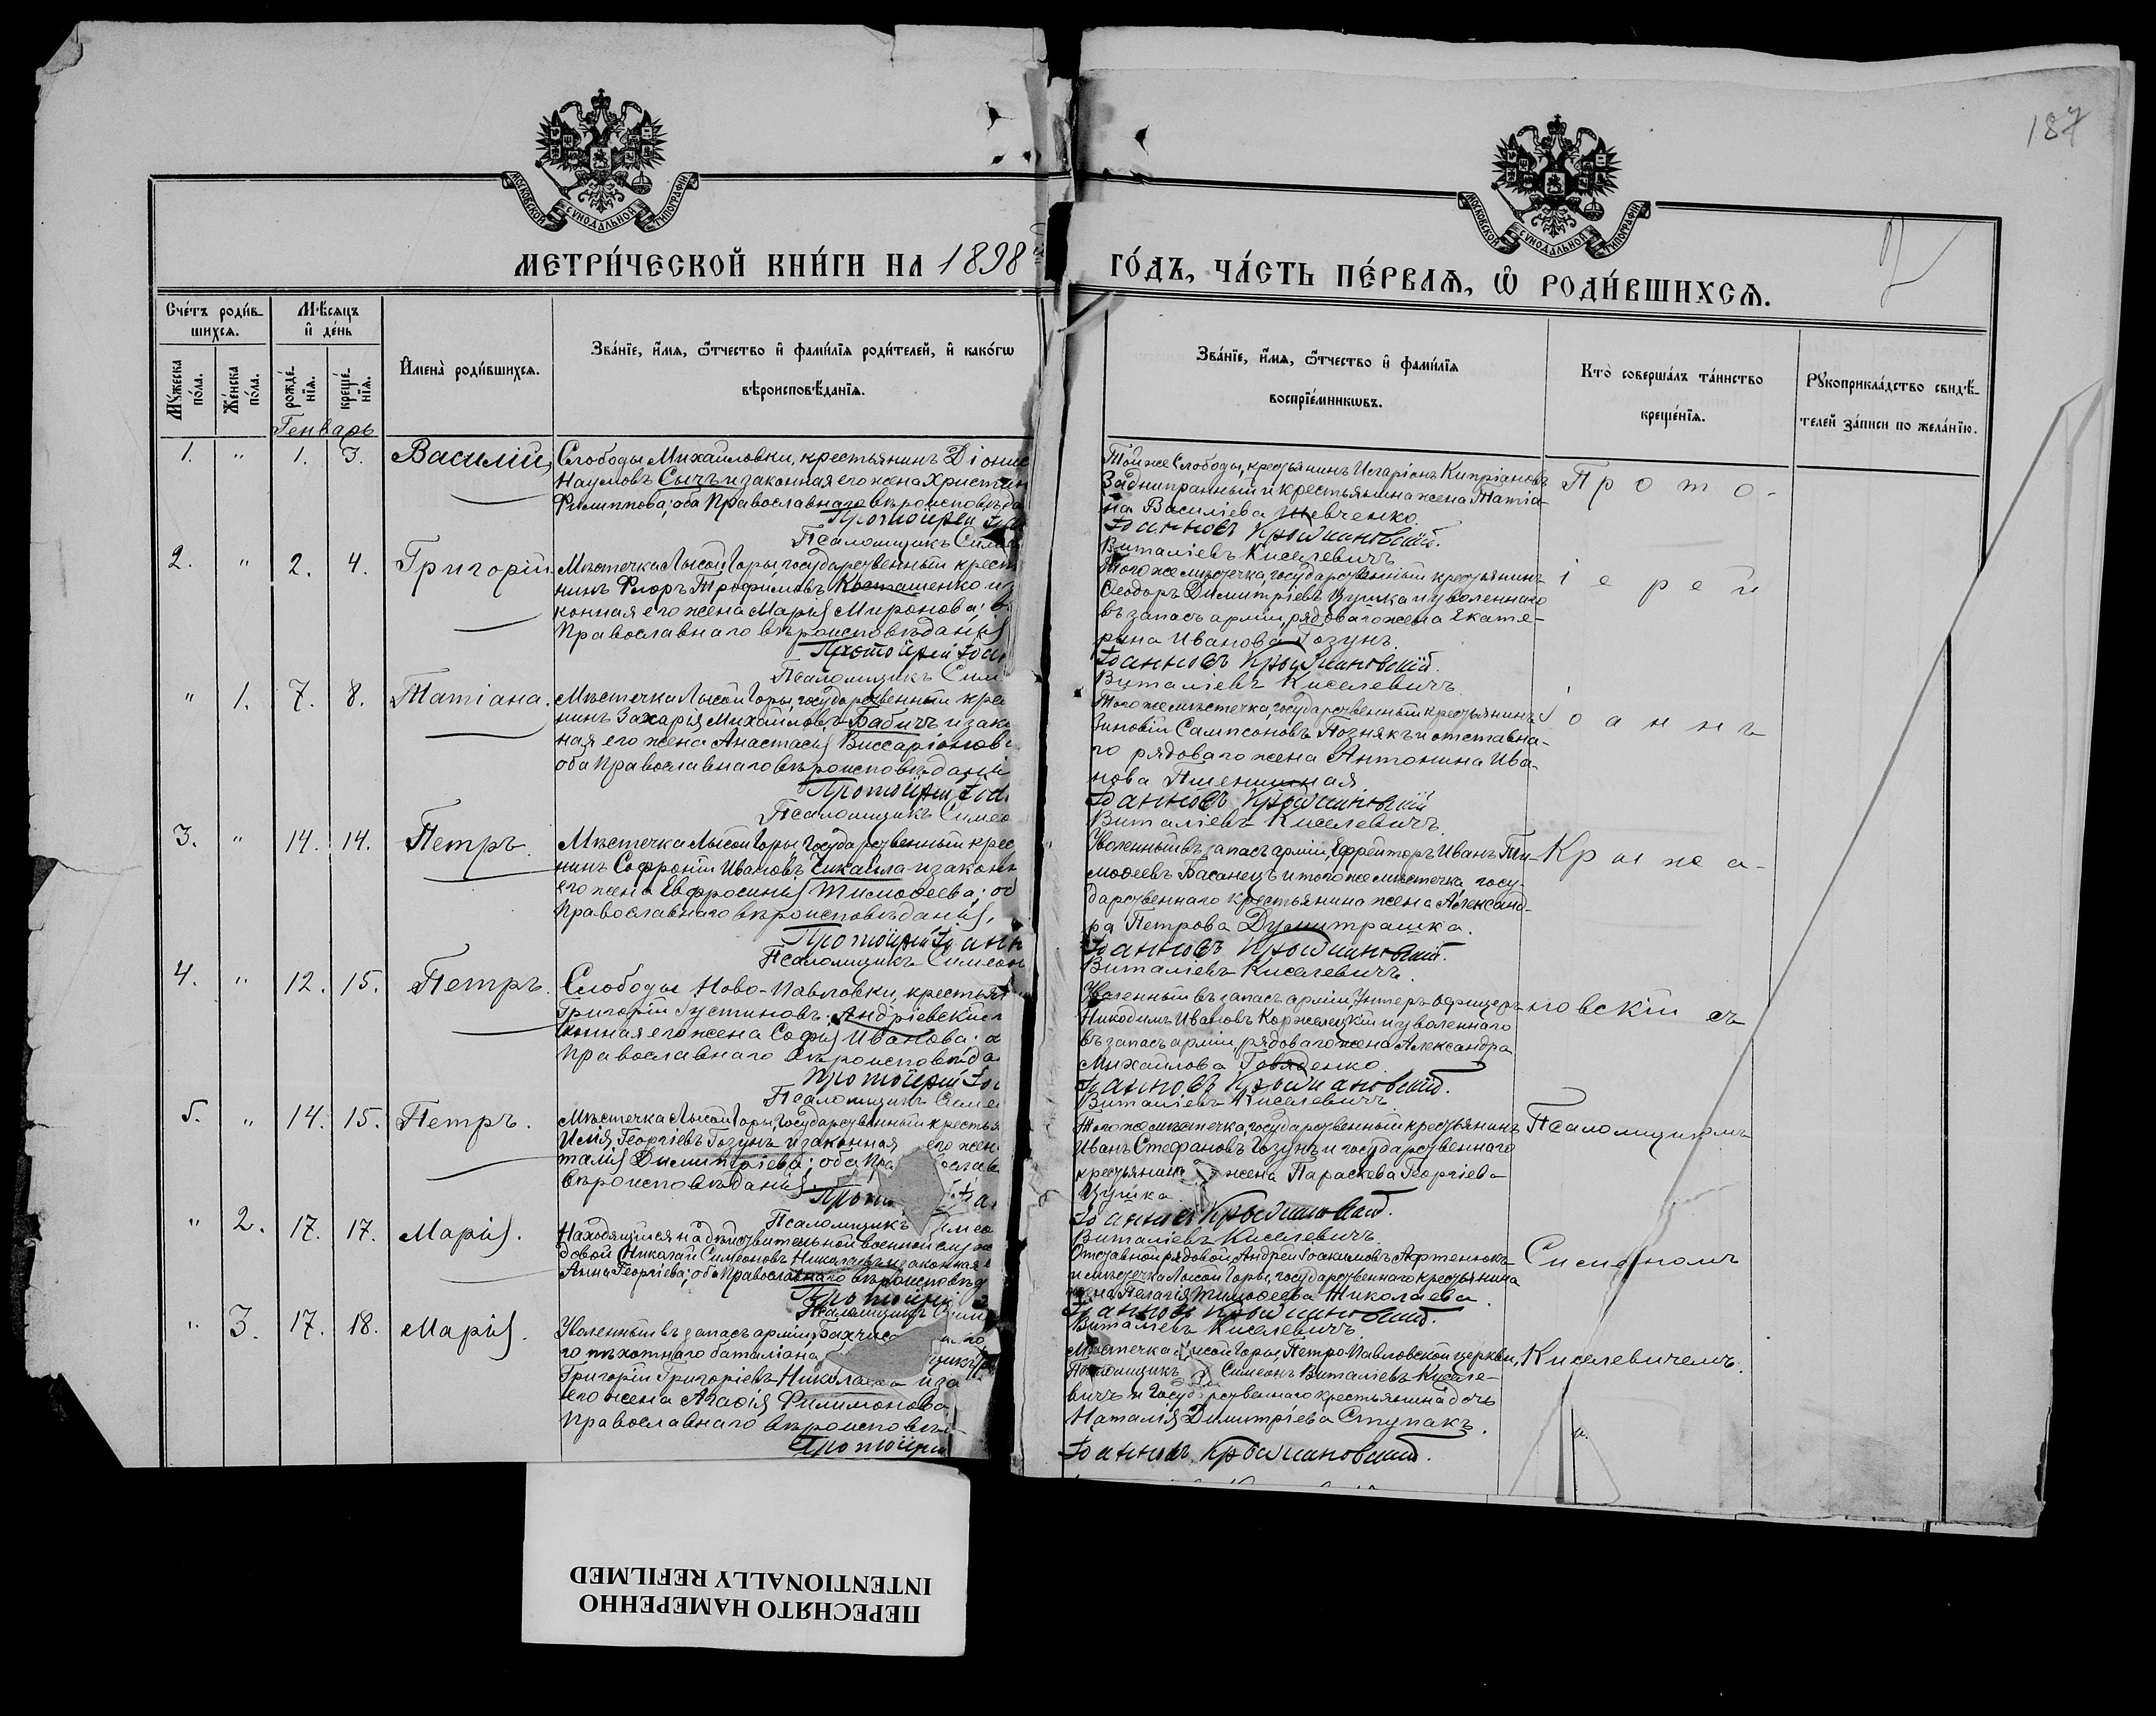 187
МОСКОВСКОЙ СѴНОДАЛЬНОЙ ТИПОГРАФІИ
МОСКОВСКОЙ СѴНОДАЛЬНОЙ ТИПОГРАФІИ
МЕТРИ́ЧЕСКОЙ КНИ́ГИ НА 1898
ГО́ДЪ, ЧА́СТЬ ПЕ́РВАѦ, Ѡ҆ РОДИ́ВШИХСѦ.
Сче́тъ роди́в-
шихсѧ.
Мѣ́сѧцъ
и҆ де́нь
Мꙋ́жеска
по́ла.
Же́нска
по́ла.
рожде́-
нїѧ.
креще́-
нїѧ.
И҆мена̀ роди́вшихсѧ.
Зва́нїе, и҆́мѧ, ѻ҆́тчество и҆ фами́лїѧ роди́телей, и҆ како́гѡ
вѣроисповѣ́данїѧ.
Зва́нїе, и҆́мѧ, ѻ҆́тчество и҆ фами́лїѧ
воспрїе́мникѡвъ.
Кто̀ соверша́лъ та́инство
креще́нїѧ.
Рꙋкоприкла́дство свидѣ́-
телей за́писи по жела́нїю.
Генварь
1. " 1. 3. Василій,
Слободы Михайловки, крестьянинъ Діонис
Наумовъ Сычъ и законная его жена Христин
Филиппова; оба Православнаго вѣроисповѣда
Протоіерей Іоа
Псаломщикъ Симео
Той же Слободы, крестьянинъ Иларіонъ Кипріановъ
Заднипранный и крестьянина жена Татіа-
на Василіева Шевченко.
Іоанновъ Крыжановскій.
Виталіевъ Киселевичъ
Прото-
2. " 2. 4. Григорій.
Мѣстечка Лысой Горы, государственный крест
нинъ Флоръ Трофимовъ Косташенко и з
конная его жена Марія Миронова; о
Православнаго вѣроисповѣданія
Протоіерей Іоа
Псаломщикъ Сим
Того же мѣстечка, государственный крестьянинъ
Ѳеодоръ Димитріевъ Цушка и уволеннаго
въ запасъ арміи, рядоваго жена Екате-
рина Иванова Гозунъ.
Іоанновъ Крыжановскій.
Виталіевъ Киселевичъ.
іерей
" 1. 7. 8. Татіана.
Мѣстечка Лысой Горы, государственный кре
нинъ Захарія Михайловъ Бабичъ и зако
ная его жена Анастасія Виссаріонов
оба Православнаго вѣроисповѣдані
Протоіерей Іоа
Псаломщикъ Симео
Того же мѣстечка, государственный крестьянинъ
Зиновій Сампсоновъ Познякъ и отставна-
го рядоваго жена Антонина Ива-
нова Пшеничная
Іоанновъ Крыжановскій
Виталіевъ Киселевичъ.
Іоаннъ
3. " 14. 14. Петръ.
Мѣстечка Лысой Горы, Государственный крес
нинъ Софроній Ивановъ Чикайла и законн
его жена Евфросинія Тимоѳеева; об
Православнаго вѣроисповѣданія,
Протоіерей Іоанн
Псаломщикъ Симеон
Уволенный въ запасъ арміи, Ефрейторъ Иванъ Ти-
моѳеевъ Басанецъ и того же мѣстечка, госу-
дарственнаго крестьянина жена Александ-
ра Петрова Думитрашка.
Іоанновъ Крыжановскій.
Виталіевъ Киселевичъ.
Крыжа-
4. " 12. 15. Петръ.
Слободы Ново-Павловки, крестьян
Григорій Іустиновъ Андріевскій
конная его жена Софія Иванова; о
Православнаго вѣроисповѣда
Протоіерей Іо
Псаломщикъ Симе
Уволенный въ запасъ арміи, Унтеръ-офицеръ
Никодимъ Ивановъ Коржелецкій и уволеннаго
въ запасъ арміи, рядоваго жена Александра
Михайлова Говяденко.
Іоанновъ Крыжановскій.
Виталіевъ Киселевичъ.
новскій съ
5. " 14. 15. Петръ.
Мѣстечка Лысой Горы, Государственный крестья
Илія Георгіевъ Гозунъ и законная его жен
талія Димитріева; оба Пра вослав
вѣроисповѣданія.
Прот Іоа
Псаломщикъ Симео
Того же мѣстечка, государственный крестьянинъ
Иванъ Стефановъ Гозунъ и государственнаго
крестьянина жена Параскева Георгіева
Цушка.
Іоанновъ Крыжановскій.
Виталіевъ Киселевичъ.
Псаломщикомъ
" 2. 17. 17. Марія.
Находящійся на дѣйствительной военной служ
довой Николай Симеоновъ Николаевъ и законная е
Анна Георгіева; оба Православнаго вѣроисповѣд
Протоіерей
Псаломщикъ Симе
Отставной рядовой Андрей Іоакимовъ Афтенюкъ
и мѣстечка Лысой Горы, государственнаго крестьянина
жена Пелагія Тимоѳеева Николаева.
Іоанновъ Крыжановскій.
Виталіевъ Киселевичъ.
Симеономъ
" 3. 17. 18. Марія.
Уволенный въ запасъ арміи, Бахчис
го пѣхотнаго баталіона
Григорій Григоріевъ Николаевъ и за
его жена Агаѳія Филимонова
Православнаго вѣроисповѣд
Протоіерей
Мѣстечка Лысой Горы, Петро-Павловской церкви,
Псаломщикъ Симеонъ Виталіевъ Киселе-
вичъ и Государственнаго крестьянина дочь
Наталія Димитріева Ступакъ.
Іоанновъ Крыжановскій.
Киселевичемъ.
ПЕРЕСНЯТО НАМЕРЕННО
INTENTIONALLY REFILMED